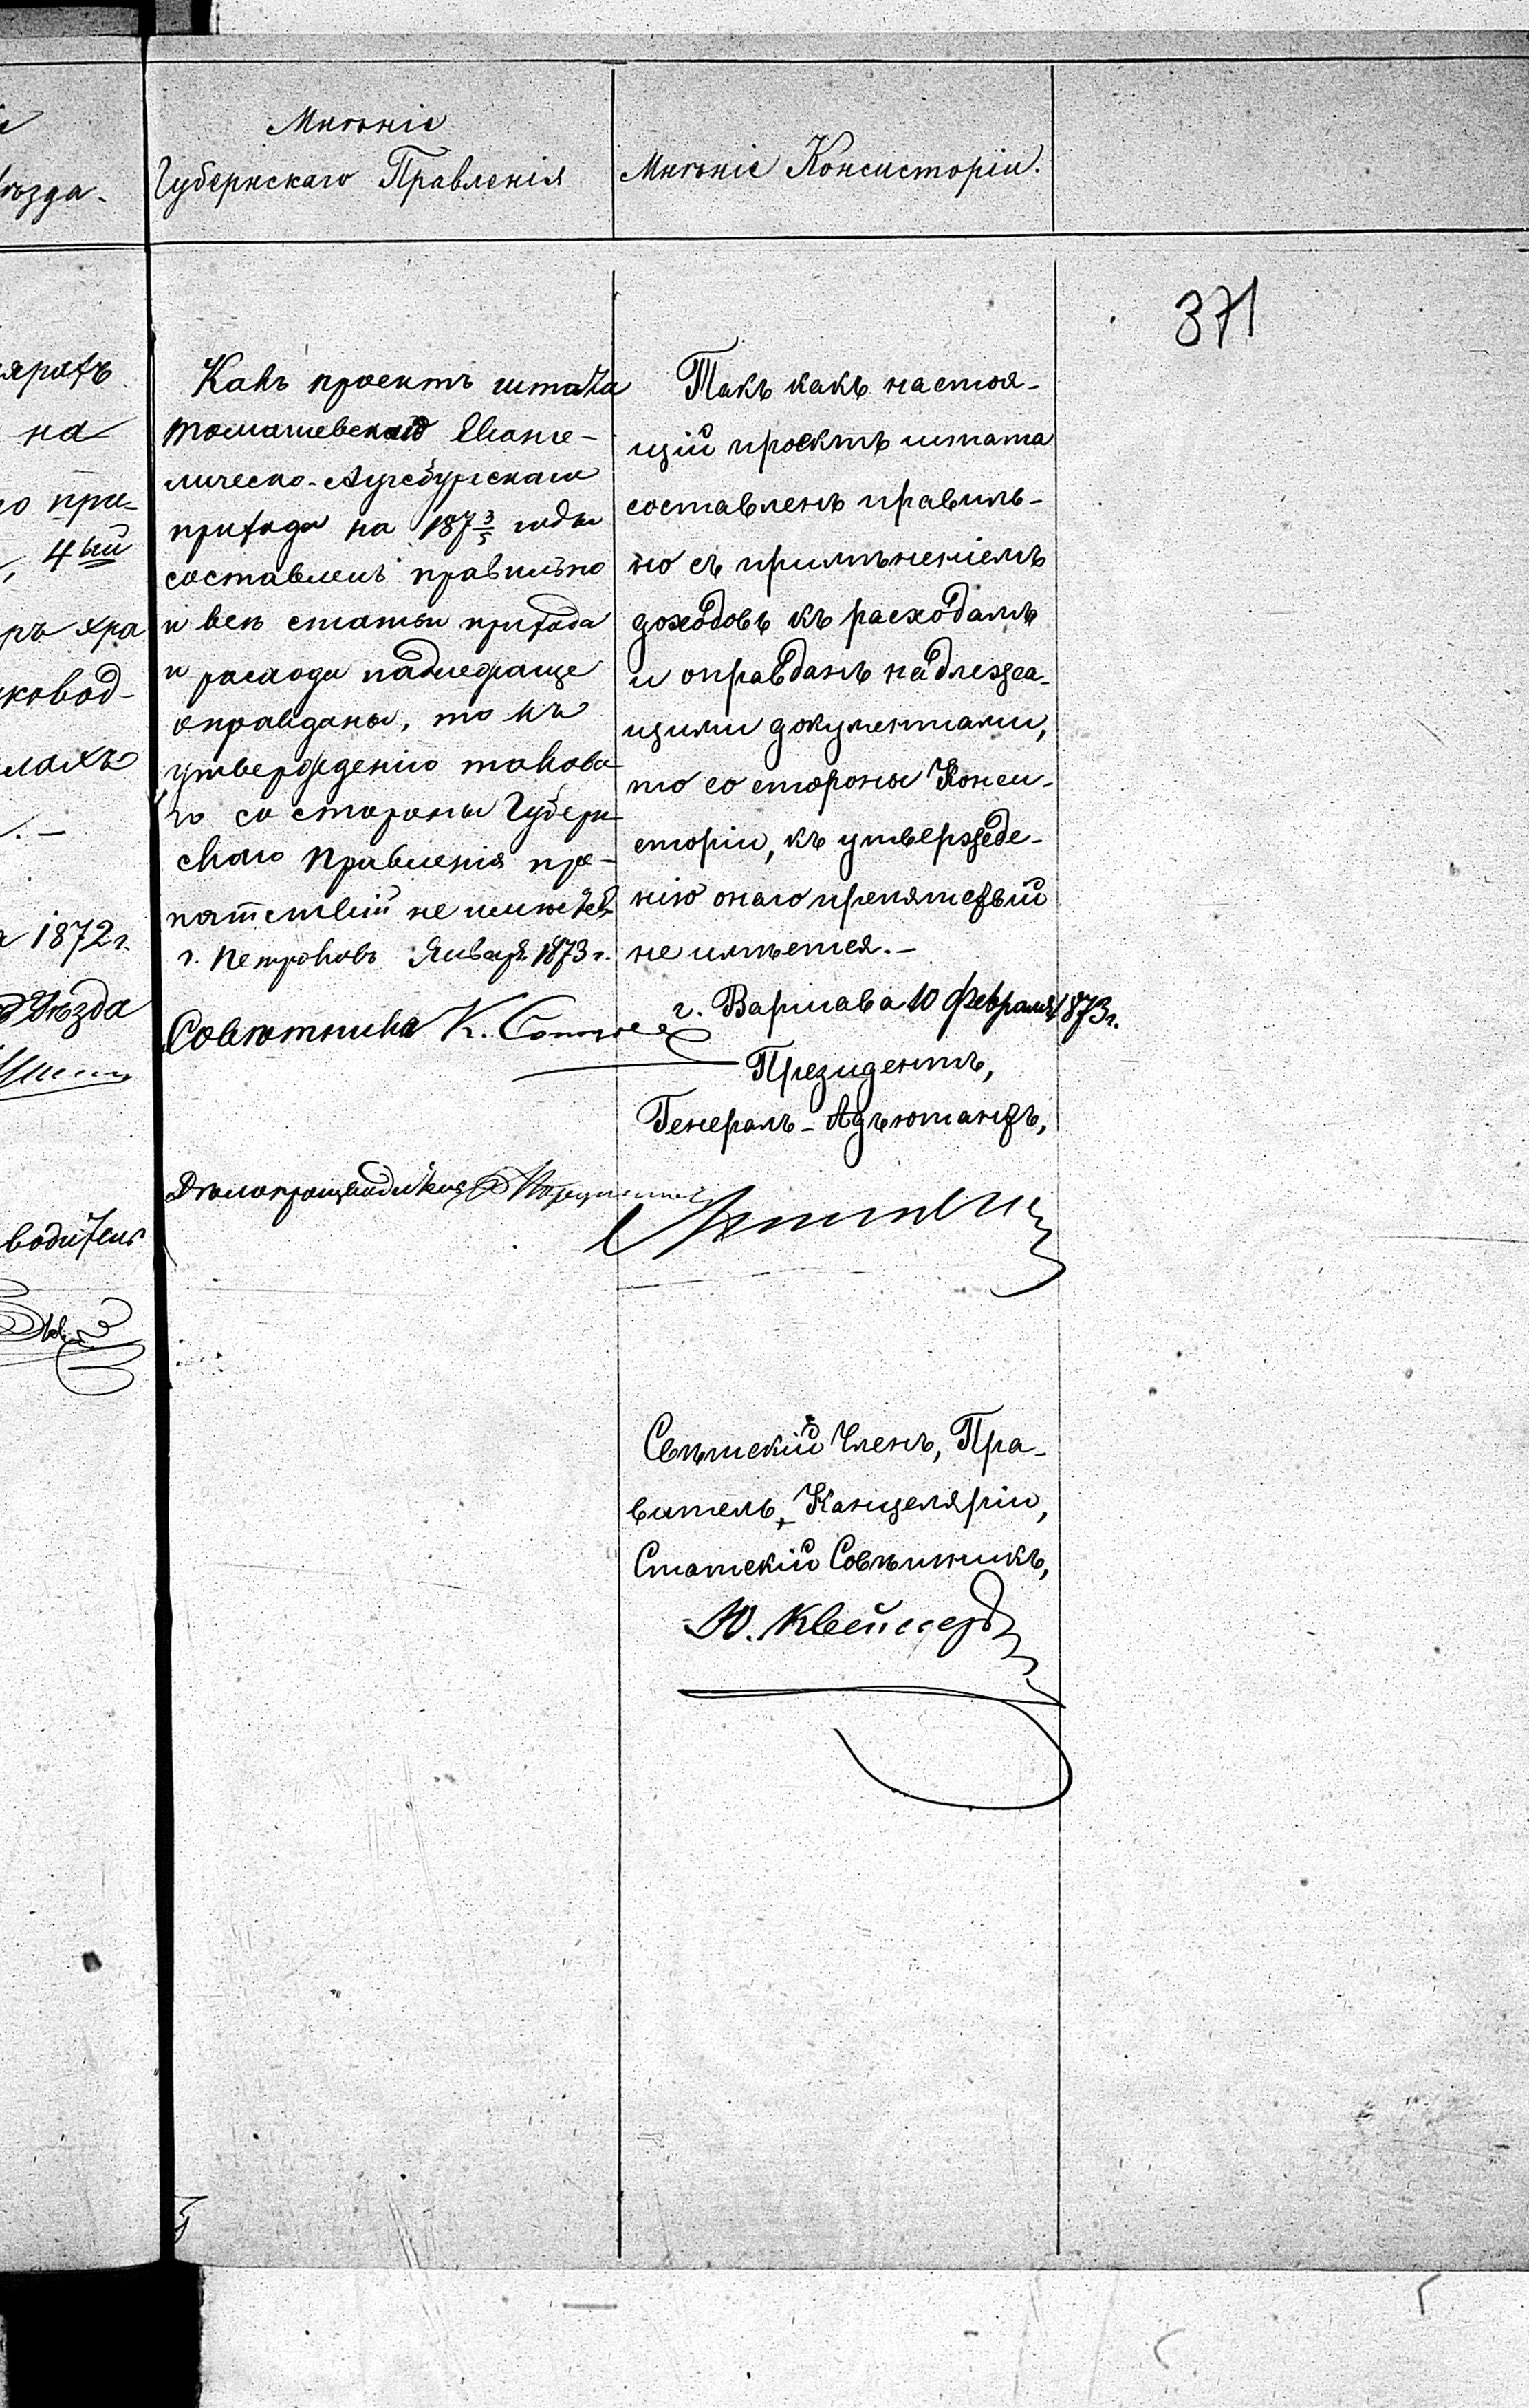 ѣзда.
Мнѣніе
Губернскаго Правленія
Мнѣніе Консисторіи.
371
на
о при-
4ый
ковод-
1872 г.
Уѣзда
водитель
Какъ проектъ штата
Томашевскаго Еванге-
лическо-Аугсбургскаго
прихода на 187 3/5 годы
составленъ правильно
и всѣ статьи прихода
и расхода надлежаще
оправданы, то къ
утвержденію таково-
го со стороны Губерн-
скаго Правленія пре-
пятствій не имѣется
г. Петроковъ Января 1873 г.
Совѣтникъ К.
Дѣлопроизводитель
Такъ какъ настоя-
щій проектъ штата
составленъ правиль-
но съ примѣненіемъ
доходовъ къ расходамъ
и оправданъ надлежа-
щими документами,
то со стороны Конси-
сторіи, къ утвержде-
нію онаго препятствій
не имѣется.-
г. Варшава 10 Февраля 1873 г.
Президентъ,
Генералъ-Адъютантъ,
Свѣтскій Членъ, Пра-
витель Канцеляріи,
Статскій Совѣтникъ,
Ю.